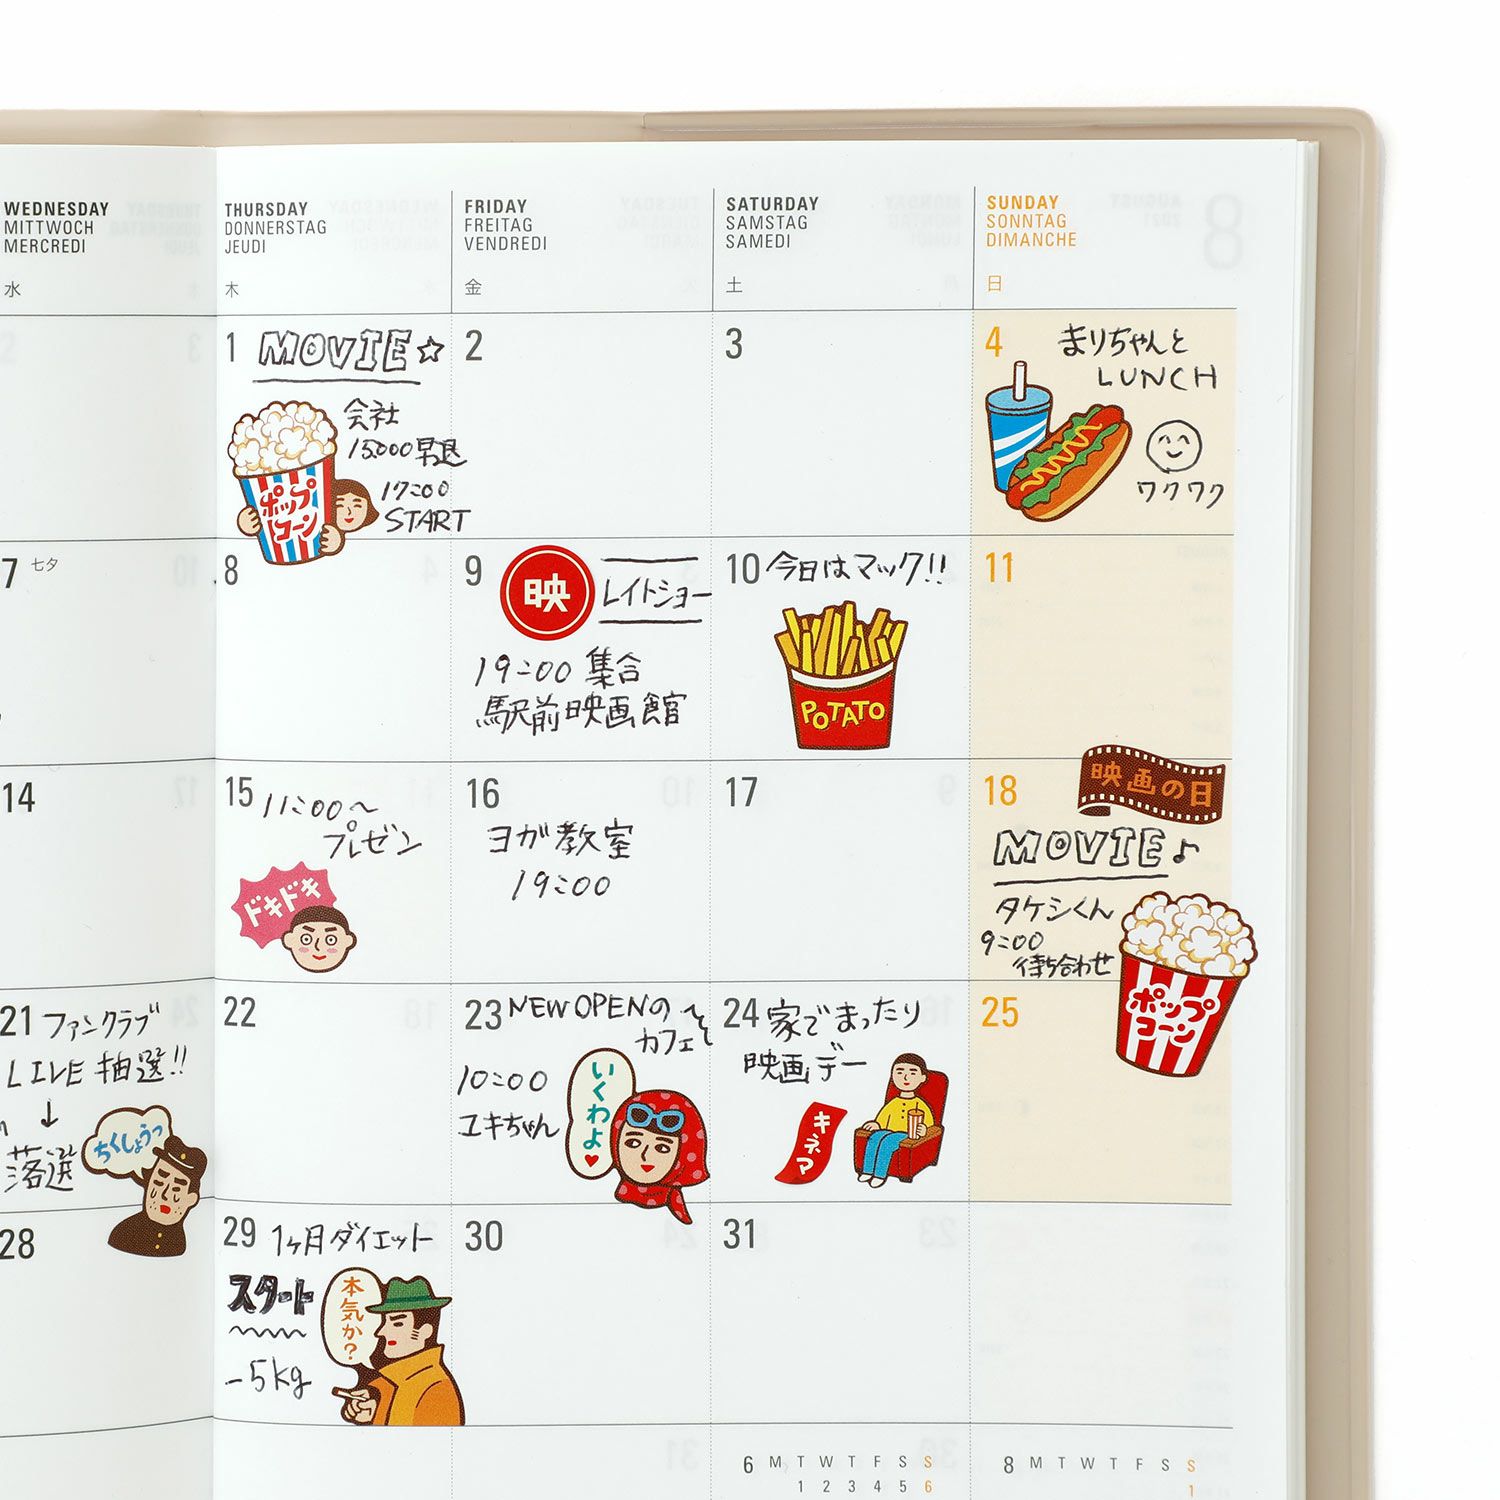 WEDNESDAY
MITTWOCH
MERCREDI
水
THURSDAY
DONNERSTAG
JEUDI
木
FRIDAY
FREITAG
VENDREDI
金
SATURDAY
SAMSTAG
SAMEDI
土
SUNDAY
SONNTAG
DIMANCHE
日
1 MOVIE☆
会社
15:00早退
17:00
START
ポップ
コーン
2
3
4
まりちゃんと
LUNCH
ワクワク
7 七夕
8
9
映
レイトショー
19:00 集合
駅前映画館
10 今日はマック!!
POTATO
11
14
15 11:00〜
プレゼン
ドキドキ
16
ヨガ教室
19:00
17
18
映画の日
MOVIE♪
タケシくん
9:00
待ち合わせ
ポップ
コーン
21 ファンクラブ
LIVE 抽選!!
↓
落選
ちくしょうっ
22
23 NEW OPENの
カフェ
10:00
ユキちゃん
いくわよ♥
24 家でまったり
映画デー
キネマ
25
28
29 1ヶ月ダイエット
スタート
-5kg
本気か?
30
31
6 M T W T F S S
1 2 3 4 5 6
8 M T W T F S S
1